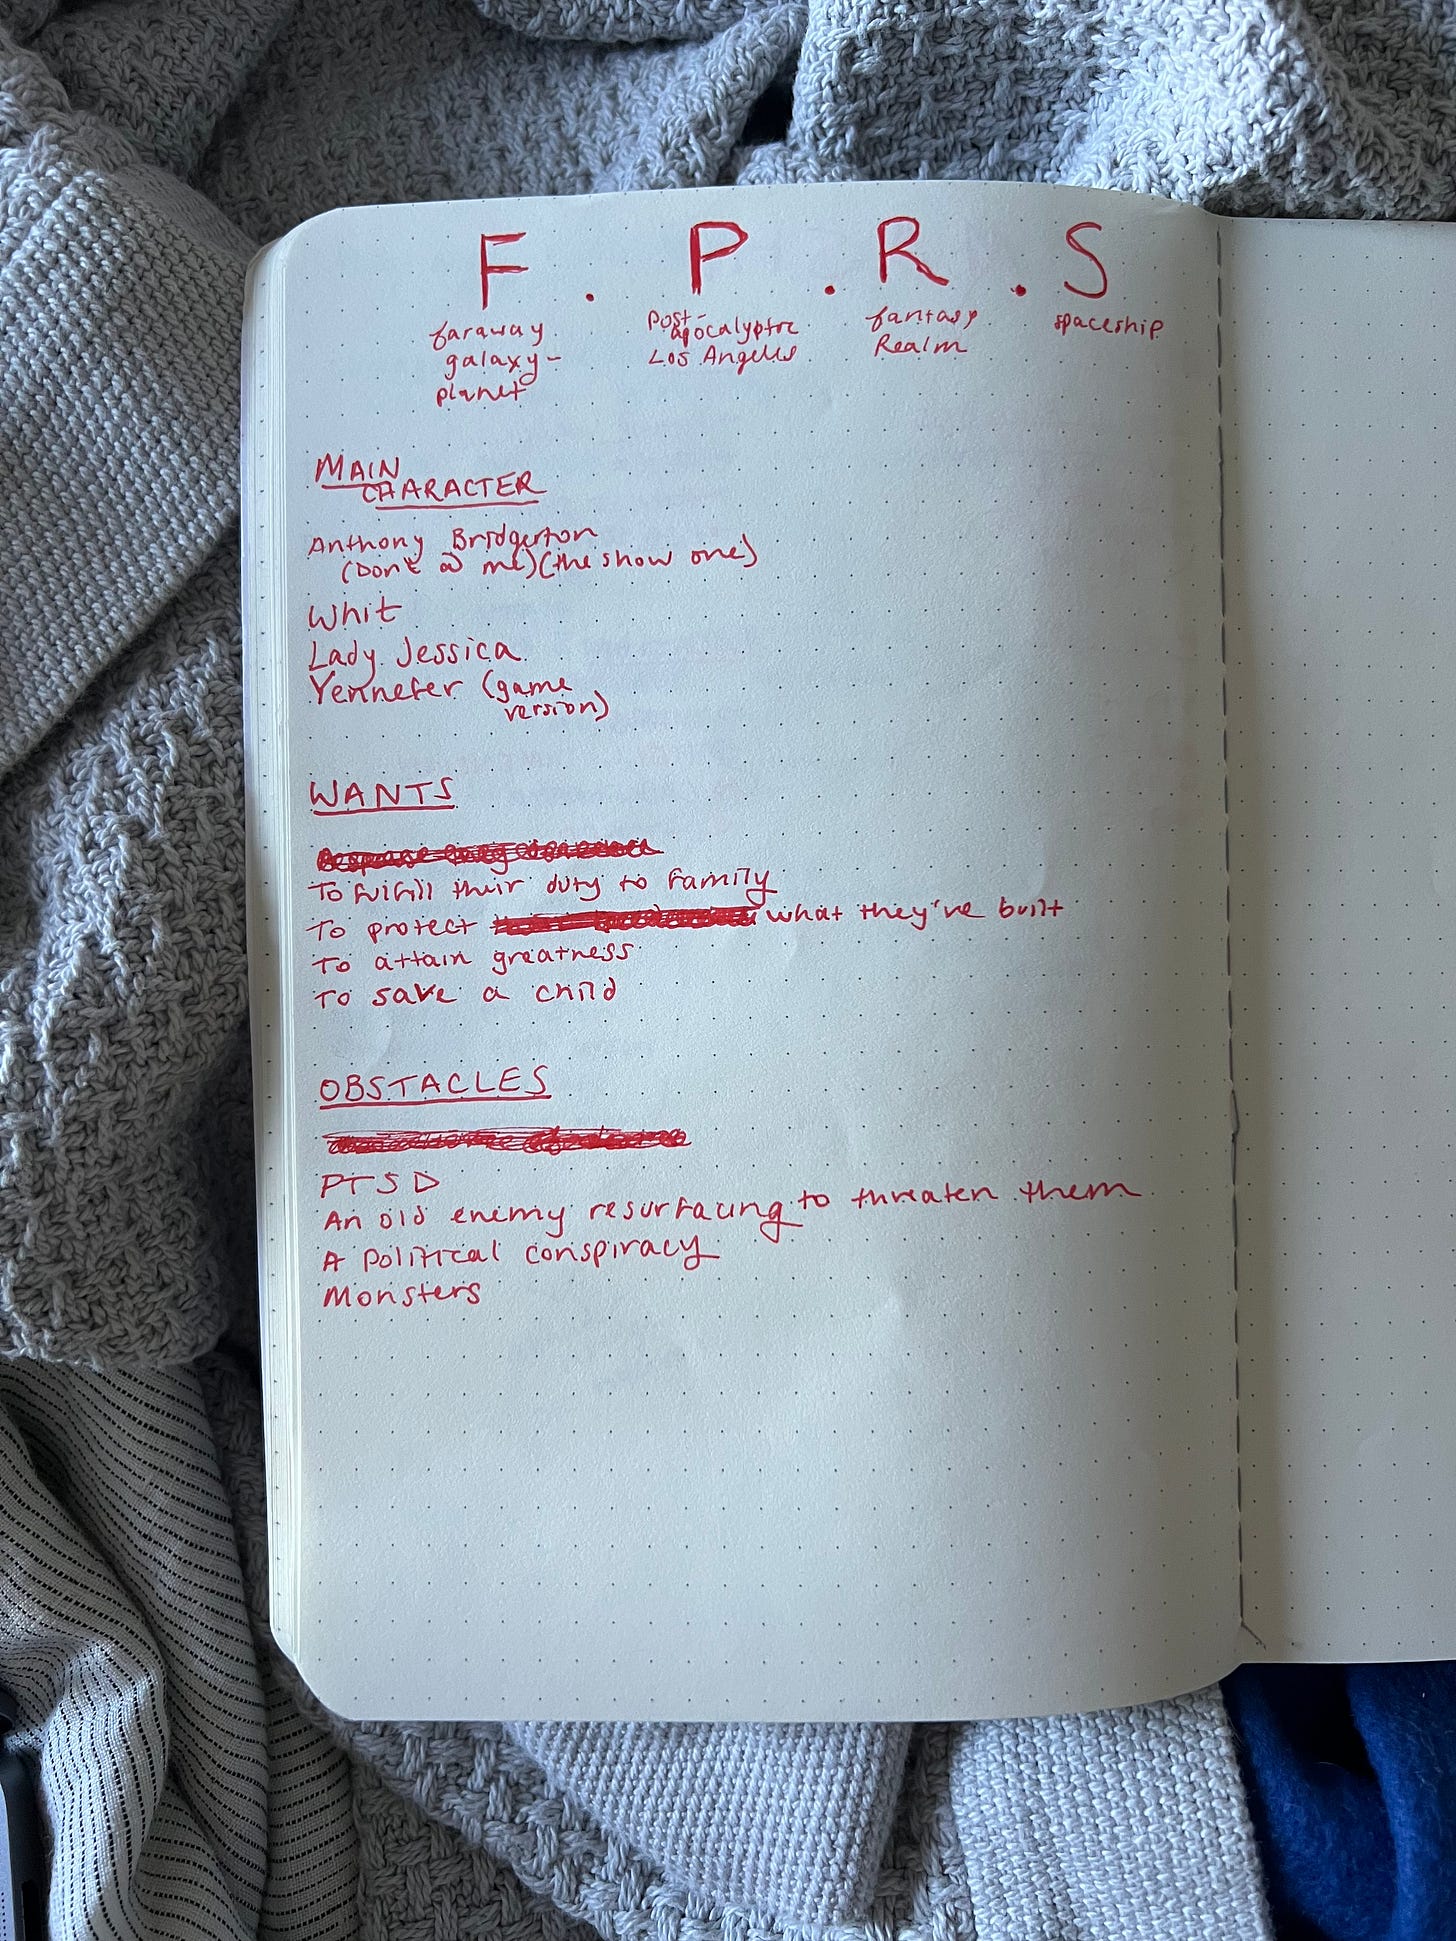 F . P . R . S
faraway galaxy- planet
Post- apocalyptic Los Angeles
fantasy Realm
spaceship
MAIN
CHARACTER
Anthony Bridgerton
(Don't @ me) (the show one)
Whit
Lady Jessica
Yennefer (game
version)
WANTS
To fulfill their duty to family
To protect what they've built
To attain greatness
To save a child
OBSTACLES
PTSD
An old enemy resurfacing to threaten them
A political conspiracy
Monsters